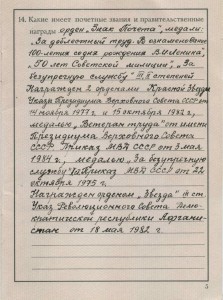 14. Какие имеет почетные звания и правительственные
награды орден „Знак Почета", медали:
„За доблестный труд. В ознаменование
100-летия со дня рождения В.И.Ленина",
„50 лет Советской милиции", „За
безупречную службу" III, II степеней
Награжден 2 орденами Красной Звезды
Указ Президиума Верховного Совета СССР от
14 ноября 1977 г. и 15 октября 1982 г.,
медалью „Ветеран труда" от имени
Президиума Верховного Совета
СССР. Приказ МВД СССР от 3 мая
1984 г., медалью „За безупречную
службу" I ст. Приказ МВД СССР от 22
октября 1975 г.
Награжден орденом „Звезда" III ст.
Указ Революционного Совета Демо-
кратической республики Афгани-
стан от 18 мая 1982 г.
5